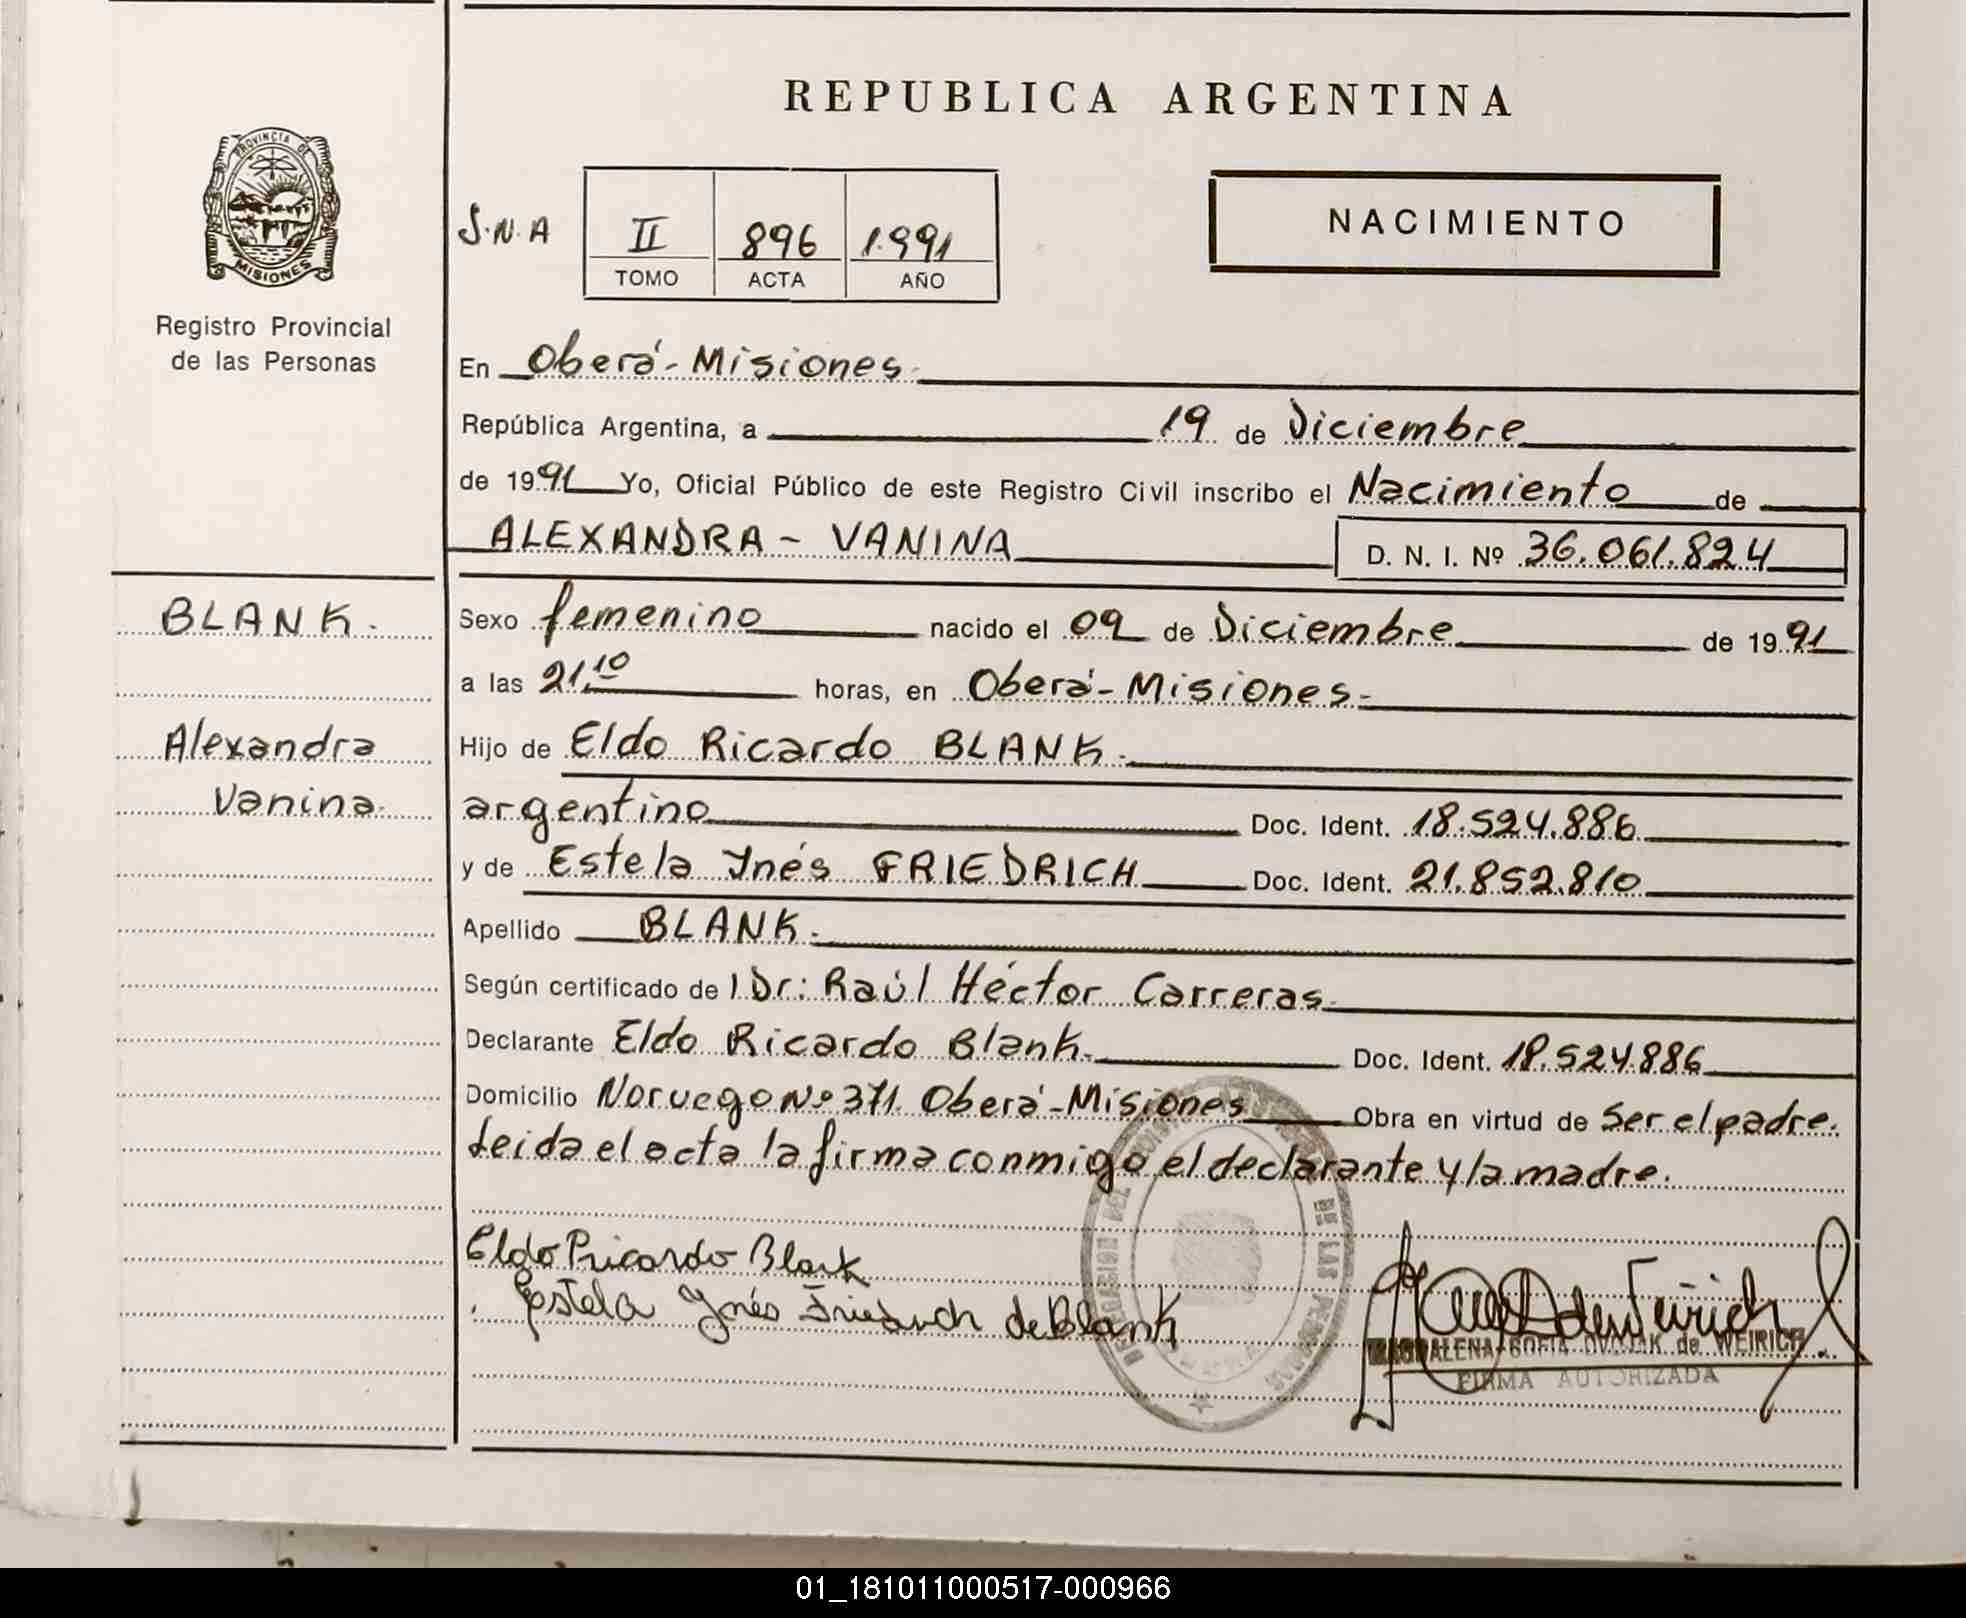 REPUBLICA ARGENTINA
PROVINCIA DE
MISIONES
Registro Provincial
de las Personas
S.N.A II 896 1.991
TOMO ACTA AÑO
NACIMIENTO
En Oberá-Misiones.
República Argentina, a 19 de Diciembre
de 1991 Yo, Oficial Público de este Registro Civil inscribo el Nacimiento de
ALEXANDRA - VANINA D. N. I. Nº 36.061.824
BLANK.
Alexandra
Vanina.
Sexo femenino nacido el 09 de Diciembre de 1991
a las 21.10 horas, en Oberá-Misiones.
Hijo de Eldo Ricardo BLANK.
argentino Doc. Ident. 18.524.886
y de Estela Ynés FRIEDRICH Doc. Ident. 21.852.810
Apellido BLANK.
Según certificado de l Dr: Raúl Héctor Carreras.
Declarante Eldo Ricardo Blank. Doc. Ident. 18.524.886
Domicilio Noruego Nº 371. Oberá-Misiones Obra en virtud de Ser el padre.
Leida el acta la firma conmigo el declarante y la madre.
Eldo Ricardo Blank
Estela Ynés Friedrich de Blank
DE LAS PERSONAS
MAGDALENA SOFIA DVOJAK de WEIRICH
FIRMA AUTORIZADA
01_181011000517-000966